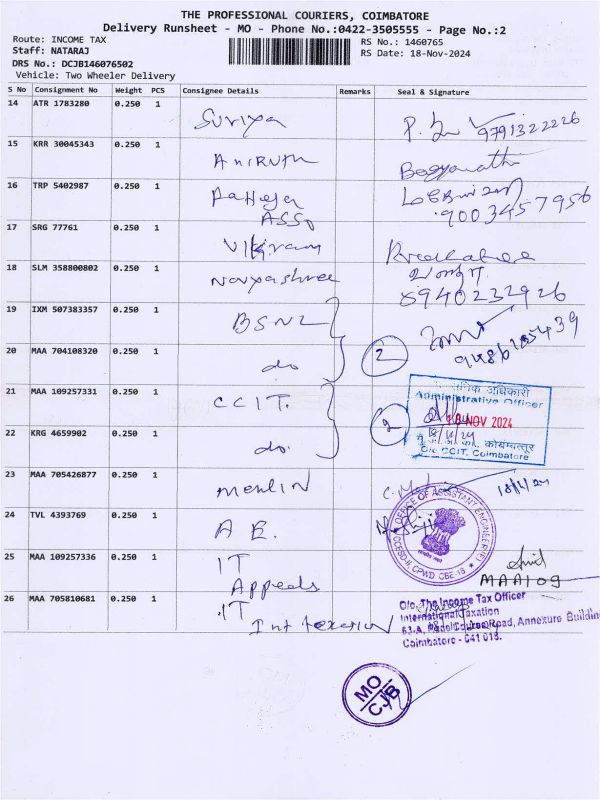 THE PROFESSIONAL COURIERS, COIMBATORE
Delivery Runsheet - MO - Phone No.:0422-3505555 - Page No.:2
Route: INCOME TAX
RS No.: 1460765
Staff: NATARAJ
RS Date: 18-Nov-2024
DRS No.: DCJB146076502
Vehicle: Two Wheeler Delivery
S No Consignment No Weight PCS Consignee Details Remarks Seal & Signature
14 ATR 1783280 0.250 1 Suriya 9791322226
15 KRR 30045343 0.250 1 Anirudh
16 TRP 5402987 0.250 1
ASSO 9003457956
17 SRG 77761 0.250 1 Vikram
18 SLM 358800802 0.250 1 Navyashree
8940232926
19 IXM 507383357 0.250 1 BSNL
20 MAA 704108320 0.250 1 do 2
21 MAA 109257331 0.250 1 CCIT. 2
Administrative Officer
18 NOV 2024
22 KRG 4659902 0.250 1 do.
आ.का., कोयम्बत्तूर
O/o. CCIT, Coimbatore
23 MAA 705426877 0.250 1 Merlin
24 TVL 4393769 0.250 1 A E.
OFFICE OF ASSISTANT ENGINEER
CPWD, CBE-18
25 MAA 109257336 0.250 1 IT
Appeals MAA109
26 MAA 705810681 0.250 1 IT
Int taxation
O/o. The Income Tax Officer
International Taxation
63-A, Race Course Road, Annexure Building
Coimbatore - 641 018.
MO
CJB